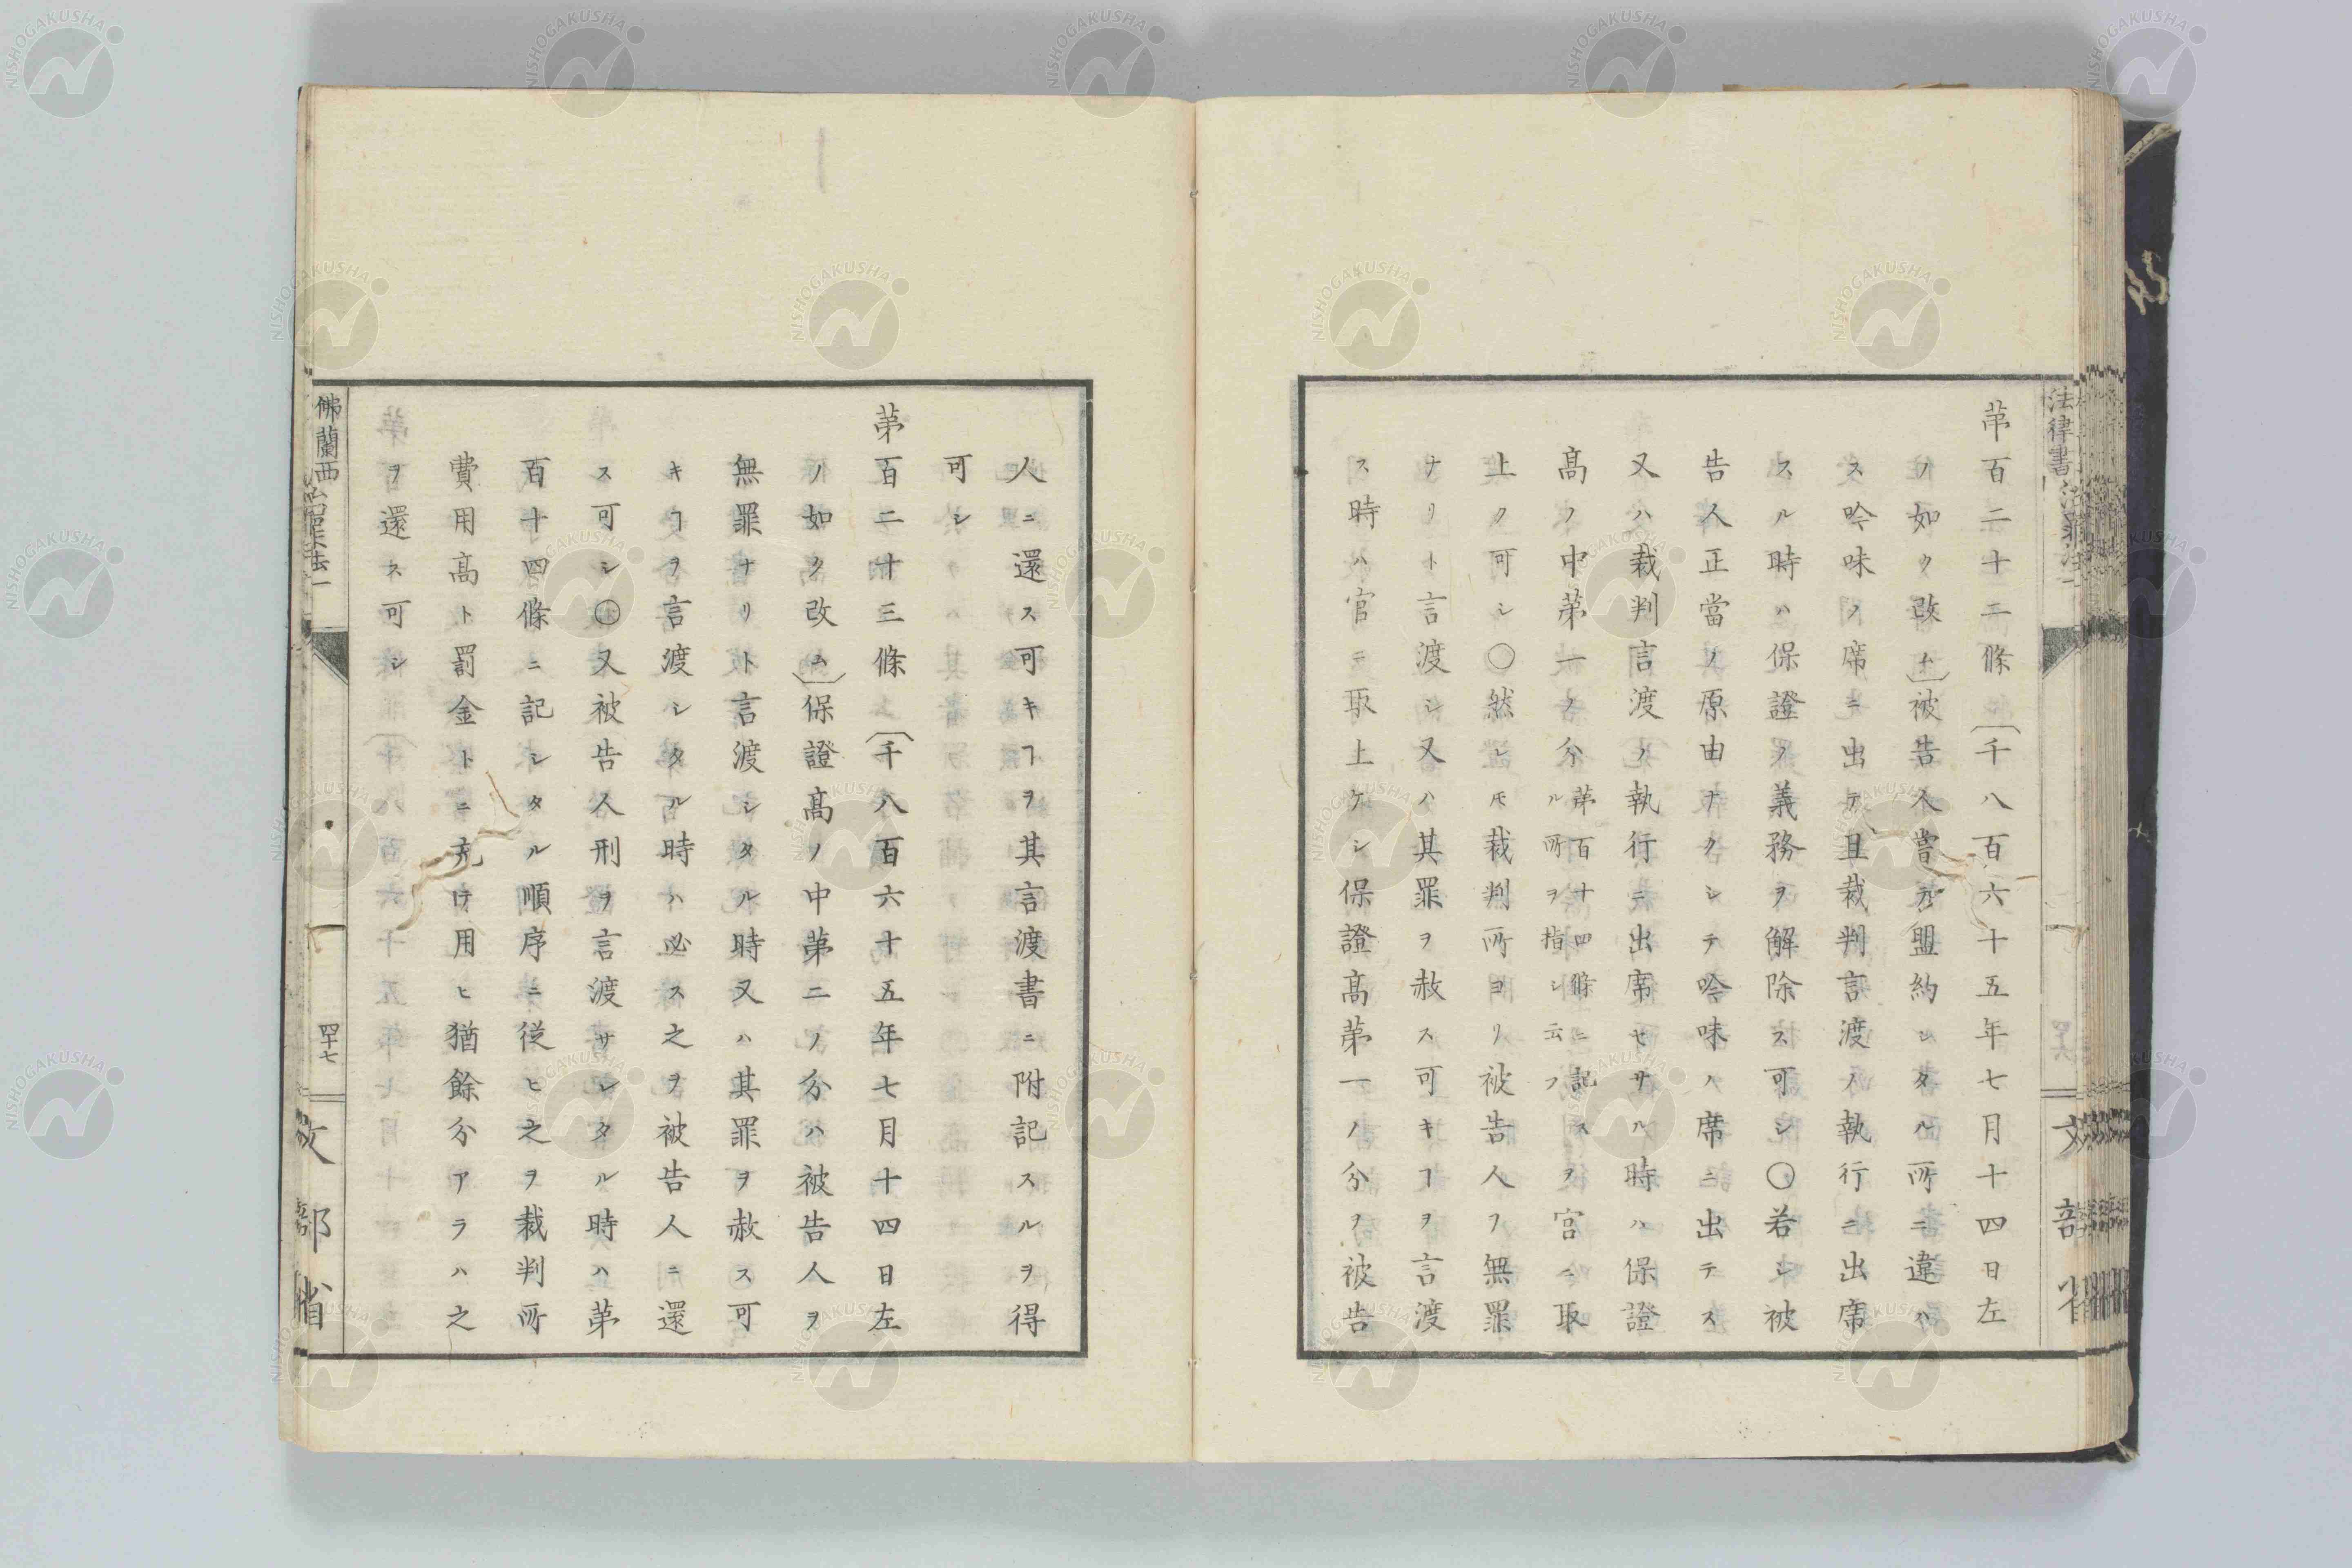 第百二十二條〔千八百六十五年七月十四日左
ノ如ク改ム〕被告人嘗テ盟約シタル所ニ違ハ
ス吟味ノ席ニ出テ且裁判言渡ノ執行ニ出席
スル時ハ保證ノ義務ヲ解除ス可シ〇若シ被
告人正當ノ原由ナクシテ吟味ノ席ニ出テス
又ハ裁判言渡ノ執行ニ出席セサル時ハ保證
高ノ中第一ノ分
第百十四條ニ記ス
ル所ヲ指シ云フ
ヲ官ニ取
上ク可シ〇然レ𪜈裁判所ヨリ被告人ヲ無罪
ナリト言渡シ又ハ其罪ヲ赦ス可キヿヲ言渡
ス時ハ官ニ取上ケシ保證高第一ノ分ヲ被告
人ニ還ス可キヿヲ其言渡書ニ附記スルヲ得
可シ
第百二十三條〔千八百六十五年七月十四日左
ノ如ク改ム〕保證高ノ中第二ノ分ハ被告人ヲ
無罪ナリト言渡シタル時又ハ其罪ヲ赦ス可
キヿヲ言渡シタル時ハ必ス之ヲ被告人ニ還
ス可シ〇又被告人刑ヲ言渡サレタル時ハ第
百十四條ニ記シタル順序ニ從ヒ之ヲ裁判所
費用高ト罰金トニ充ケ用ヒ猶餘分アラハ之
ヲ還ス可シ
佛蘭西治罪法一
四十七
文部省